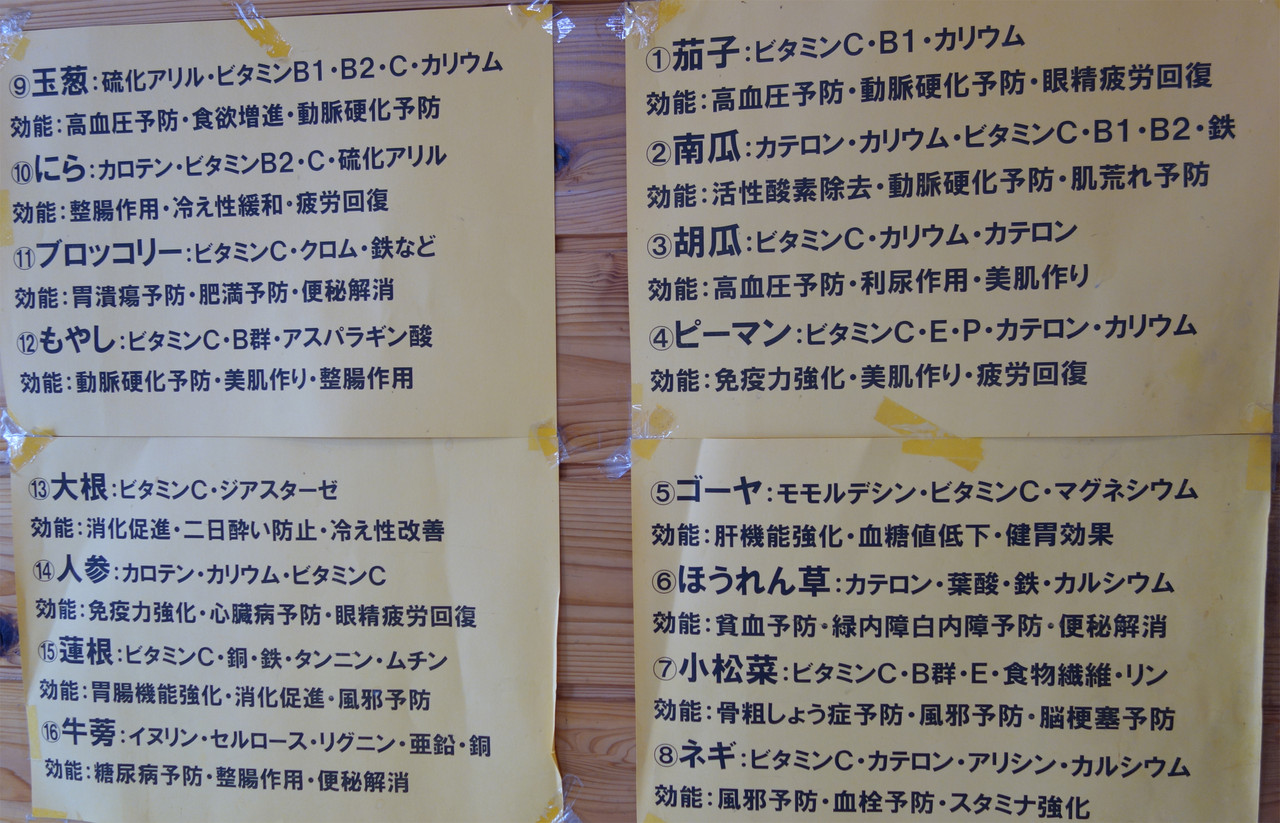 ①茄子:ビタミンC・B1・カリウム
効能:高血圧予防・動脈硬化予防・眼精疲労回復
②南瓜:カテロン・カリウム・ビタミンC・B1・B2・鉄
効能:活性酸素除去・動脈硬化予防・肌荒れ予防
③胡瓜:ビタミンC・カリウム・カテロン
効能:高血圧予防・利尿作用・美肌作り
④ピーマン:ビタミンC・E・P・カテロン・カリウム
効能:免疫力強化・美肌作り・疲労回復
⑤ゴーヤ:モモルデシン・ビタミンC・マグネシウム
効能:肝機能強化・血糖値低下・健胃効果
⑥ほうれん草:カテロン・葉酸・鉄・カルシウム
効能:貧血予防・緑内障白内障予防・便秘解消
⑦小松菜:ビタミンC・B群・E・食物繊維・リン
効能:骨粗しょう症予防・風邪予防・脳梗塞予防
⑧ネギ:ビタミンC・カテロン・アリシン・カルシウム
効能:風邪予防・血栓予防・スタミナ強化
⑨玉葱:硫化アリル・ビタミンB1・B2・C・カリウム
効能:高血圧予防・食欲増進・動脈硬化予防
⑩にら:カロテン・ビタミンB2・C・硫化アリル
効能:整腸作用・冷え性緩和・疲労回復
⑪ブロッコリー:ビタミンC・クロム・鉄など
効能:胃潰瘍予防・肥満予防・便秘解消
⑫もやし:ビタミンC・B群・アスパラギン酸
効能:動脈硬化予防・美肌作り・整腸作用
⑬大根:ビタミンC・ジアスターゼ
効能:消化促進・二日酔い防止・冷え性改善
⑭人参:カロテン・カリウム・ビタミンC
効能:免疫力強化・心臓病予防・眼精疲労回復
⑮蓮根:ビタミンC・銅・鉄・タンニン・ムチン
効能:胃腸機能強化・消化促進・風邪予防
⑯牛蒡:イヌリン・セルロース・リグニン・亜鉛・銅
効能:糖尿病予防・整腸作用・便秘解消